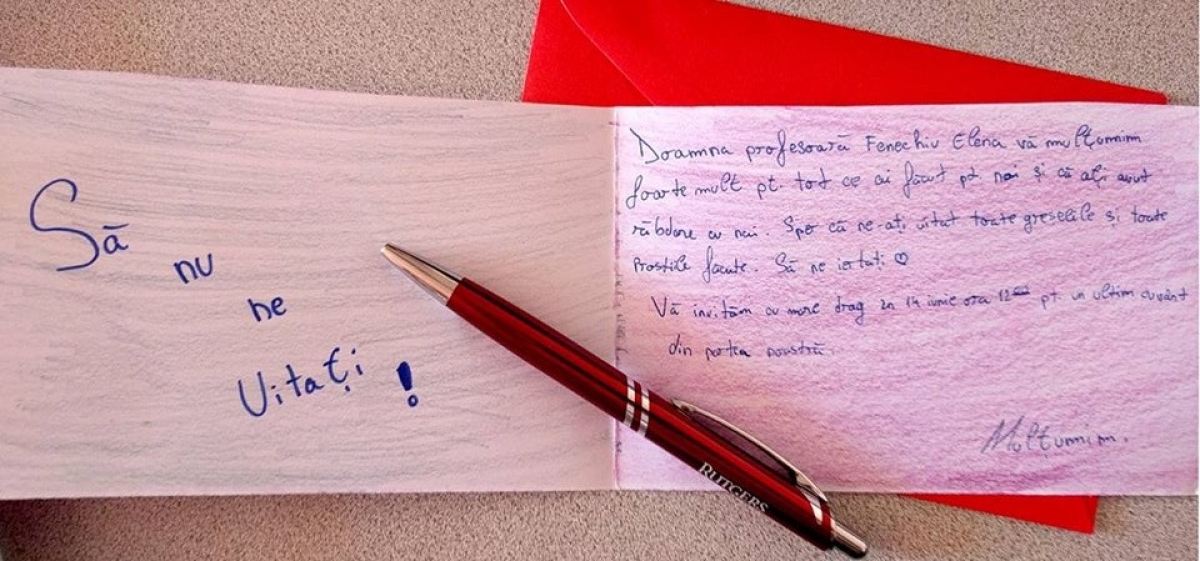 Să
nu
ne
Uitați !
Doamna profesoară Fenechiu Elena vă mulțumim
foarte mult pt. tot ce ai făcut pt. noi și că ați avut
răbdare cu noi. Sper că ne-ați uitat toate greselile și toate
Prostiile facute. Să ne iertați ♡
Vă invităm cu mare drag în 14 iunie ora 12⁰⁰ pt. un ultim cuvânt
din partea noastră.
Mulțumim.
RUTGERS